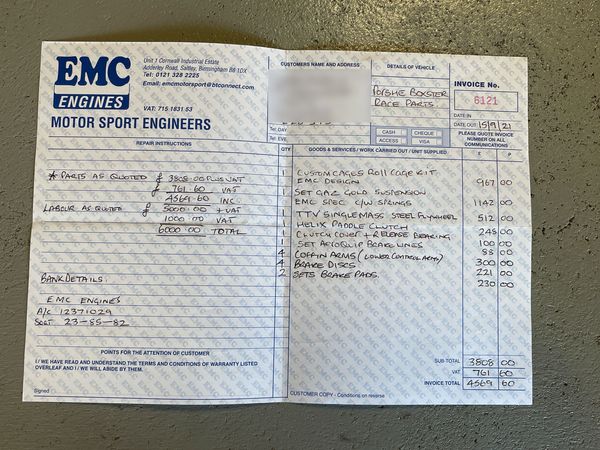 EMC
ENGINES
Unit 1 Cornwall Industrial Estate
Adderley Road, Saltley, Birmingham B8 1DX
Tel: 0121 328 2225
Email: emcmotorsport@btconnect.com
VAT: 715 1831 53
MOTOR SPORT ENGINEERS
REPAIR INSTRUCTIONS
* PARTS AS QUOTED £ 3808.00 PLUS VAT
£ 761.60 VAT
4569.60 INC
LABOUR AS QUOTED £ 5000.00 + VAT
1000.00 VAT
6000.00 TOTAL
BANK DETAILS:
EMC ENGINES
A/C 12371029
SORT 23-85-82
POINTS FOR THE ATTENTION OF CUSTOMER
I / WE HAVE READ AND UNDERSTAND THE TERMS AND CONDITIONS OF WARRANTY LISTED
OVERLEAF AND I / WE WILL ABIDE BY THEM.
Signed
CUSTOMERS NAME AND ADDRESS
Tel: DAY
Tel: EVE
DETAILS OF VEHICLE
PORSHE BOXSTER
RACE PARTS.
CASH CHEQUE
ACCESS VISA
INVOICE No.
6121
DATE IN
DATE OUT 15/9/21
PLEASE QUOTE INVOICE
NUMBER ON ALL
COMMUNICATIONS
QTY GOODS & SERVICES / WORK CARRIED OUT / UNIT SUPPLIED £ P
1 CUSTOM CAGES ROLL CAGE KIT
EMC DESIGN 967 00
1 SET GAZ GOLD SUSPENSION
EMC SPEC C/W SPRINGS 1142 00
1 TTV SINGLE MASS STEEL FLYWHEEL 512 00
1 HELIX PADDLE CLUTCH
1 CLUTCH COVER + RELEASE BEARING 248 00
1 SET AEROQUIP BRAKE LINES 100 00
4 COFFIN ARMS (LOWER CONTROL ARMS) 88 00
300 00
4 BRAKE DISCS 221 00
2 SETS BRAKE PADS. 230 00
SUB-TOTAL 3808 00
VAT 761 60
INVOICE TOTAL 4569 60
CUSTOMER COPY - Conditions on reverse